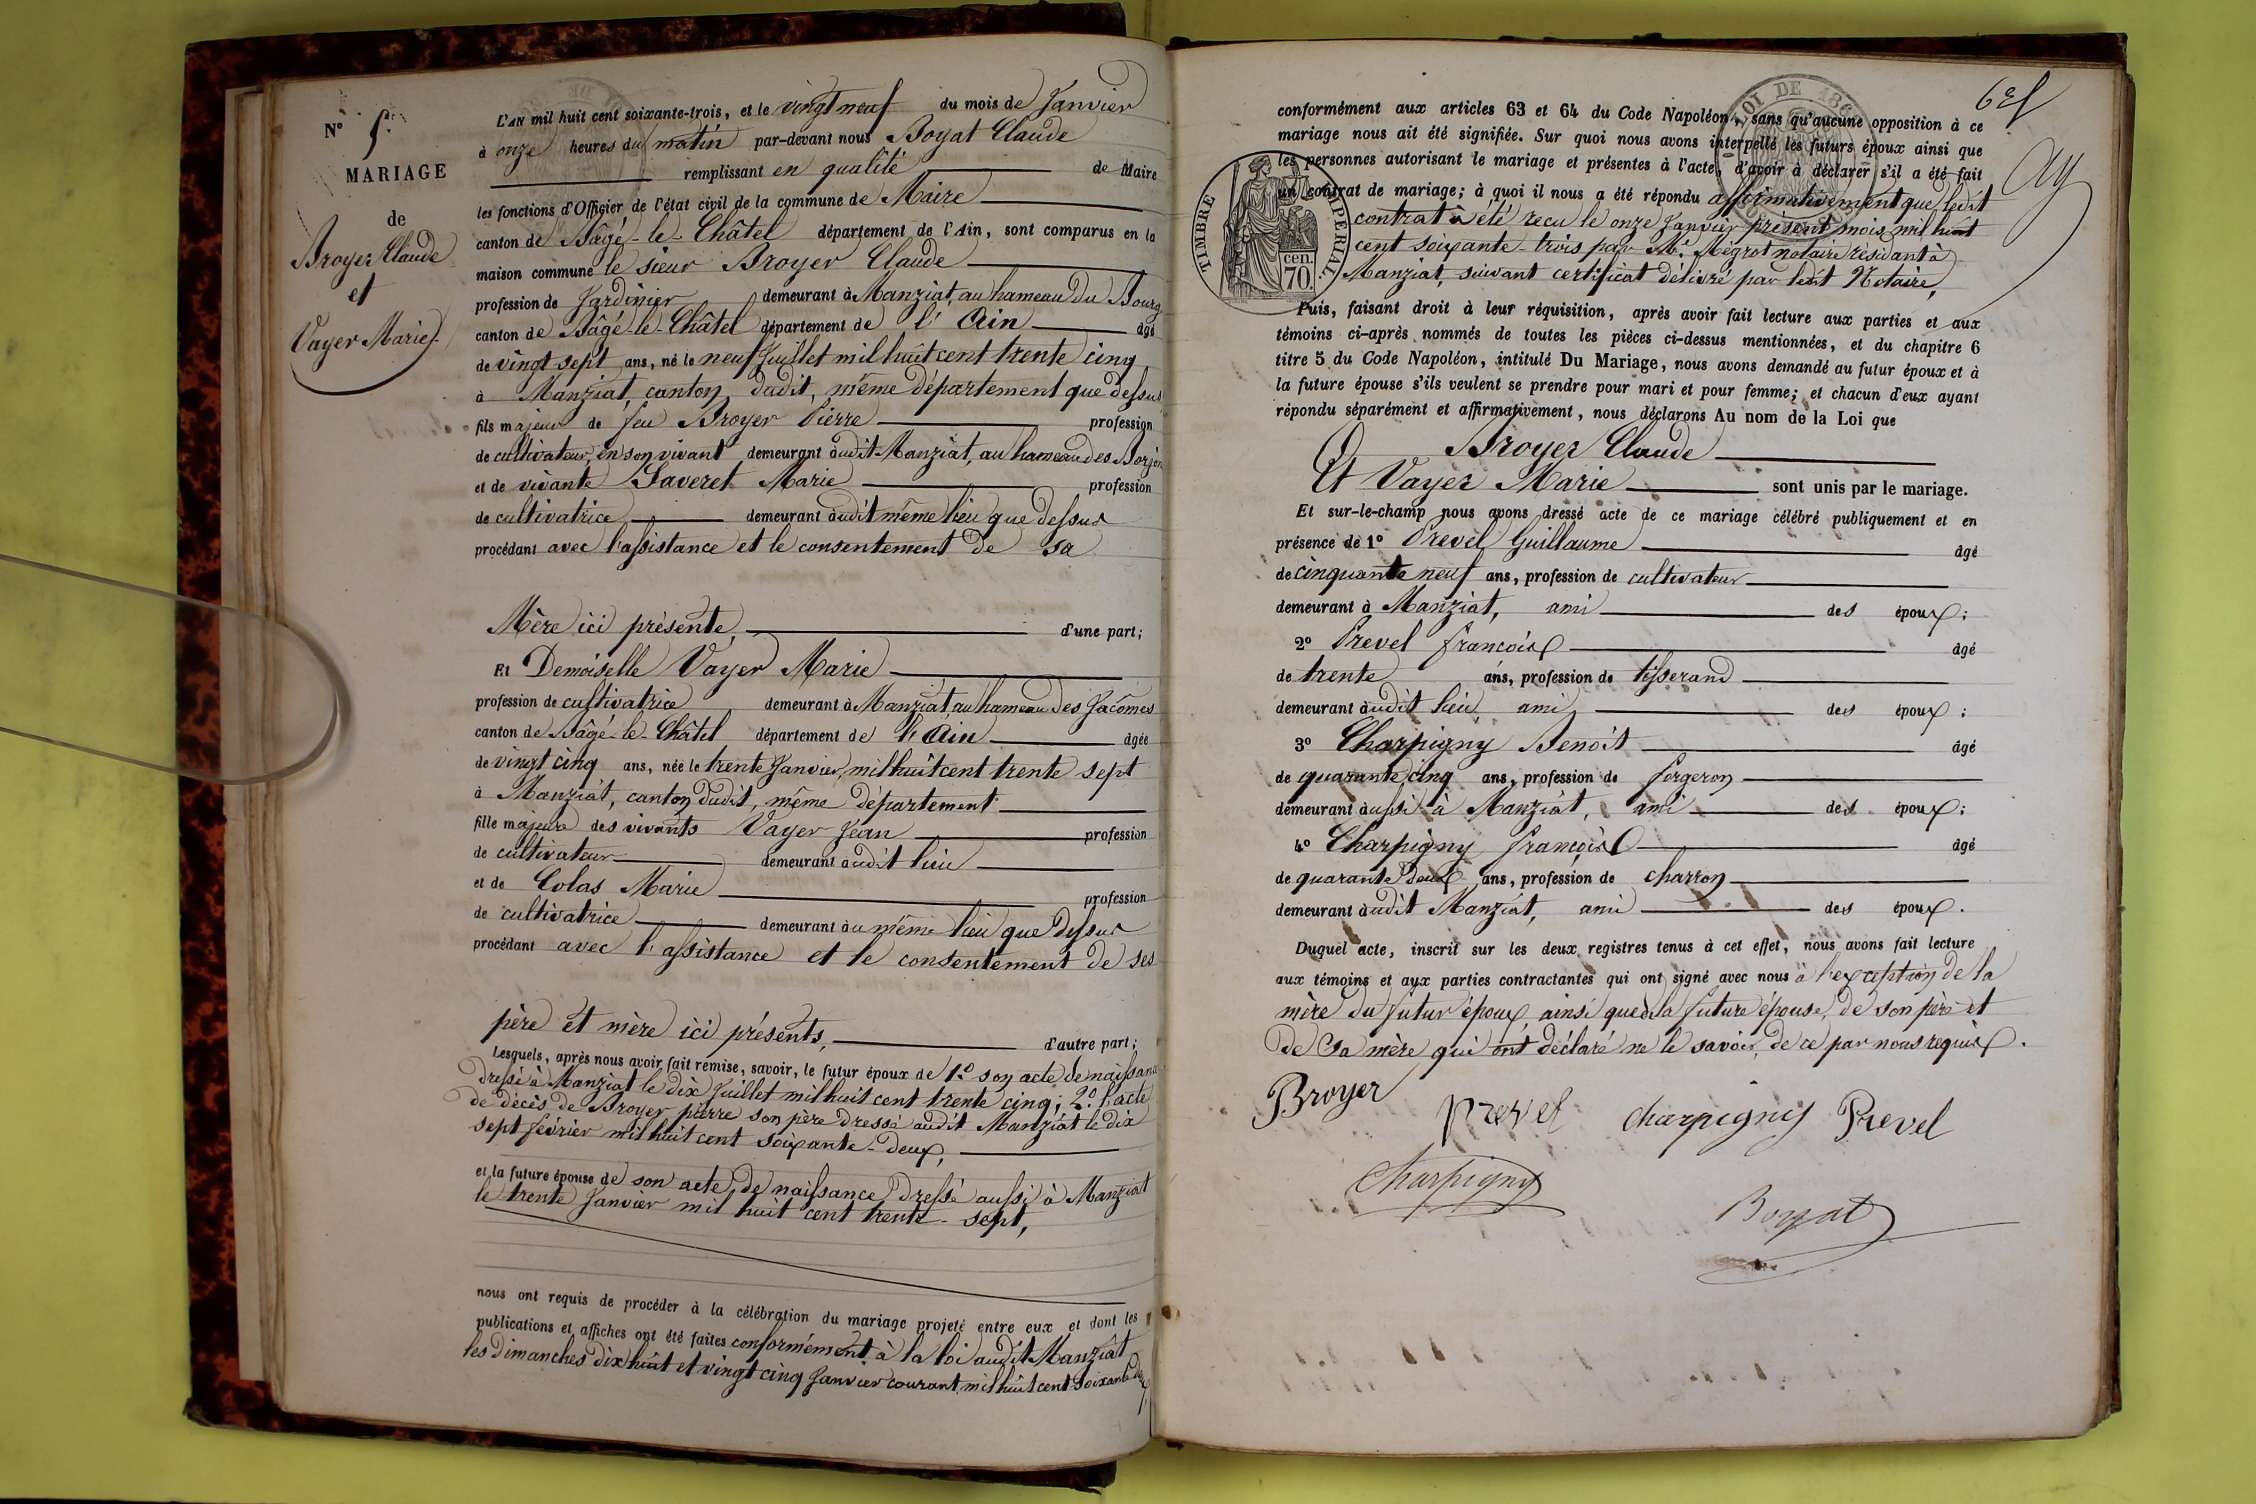 N° 5.
MARIAGE
de
Broyer Claude
et
Vayer Marie
L'AN mil huit cent soixante-trois, et le vingt neuf du mois de Janvier
à onze heures du matin par-devant nous Boyat Claude
remplissant en qualité de Maire
les fonctions d'Officier de l'état civil de la commune de Maire
canton de Bâgé-le-Châtel département de l'Ain, sont comparus en la
maison commune le sieur Broyer Claude
profession de Jardinier demeurant à Manziat, au hameau du Bourg
canton de Bâgé-le-Châtel département de l'Ain âgé
de vingt sept ans, né le neuf Juillet mil huit cent trente cinq
à Manziat, canton dudit, même département que dessus
fils majeur de feu Broyer Pierre profession
de cultivateur, en son vivant demeurant audit Manziat, au hameau des
et de vivante Saveret Marie profession
de cultivatrice demeurant audit même lieu que dessus
procédant avec l'assistance et le consentement de sa
Mère ici présente, d'une part;
Et Demoiselle Vayer Marie
profession de cultivatrice demeurant à Manziat au hameau des Jacômes
canton de Bâgé-le-Châtel département de l'Ain âgée
de vingt cinq ans, née le trente Janvier, mil huit cent trente sept
à Manziat, canton dudit, même département
fille majeure des vivants Vayer Jean profession
de cultivateur demeurant audit lieu
et de Colas Marie profession
de cultivatrice demeurant au même lieu que dessus
procédant avec l'assistance et le consentement de ses
père et mère ici présents, d'autre part;
Lesquels, après nous avoir fait remise, savoir, le futur époux de 1° son acte de naissance
dressé à Manziat le dix Juillet mil huit cent trente cinq; 2° l'acte
de décès de Broyer pierre son père dressé audit Manziat le dix
sept février mil huit cent soixante-deux,
et la future épouse de son acte de naissance dressé aussi à Manziat
le trente Janvier mil huit cent trente-sept,
nous ont requis de procéder à la célébration du mariage projeté entre eux et dont les
publications et affiches ont été faites conformément à la loi audit Manziat
les Dimanches dix huit et vingt cinq Janvier courant, mil huit cent soixante
6e f
conformément aux articles 63 et 64 du Code Napoléon, sans qu'aucune opposition à ce
mariage nous ait été signifiée. Sur quoi nous avons interpellé les futurs époux ainsi que
les personnes autorisant le mariage et présentes à l'acte, d'avoir à déclarer s'il a été fait
un contrat de mariage; à quoi il nous a été répondu affirmativement que ledit
contrat a été reçu le onze Janvier présent mois, mil huit
cent soixante-trois par Me. Mégrot notaire résidant à
Manziat, suivant certificat délivré par ledit Notaire,
TIMBRE IMPÉRIAL
cen.
70.
LOI DE
Puis, faisant droit à leur réquisition, après avoir fait lecture aux parties et aux
témoins ci-après nommés de toutes les pièces ci-dessus mentionnées, et du chapitre 6
titre 5 du Code Napoléon, intitulé Du Mariage, nous avons demandé au futur époux et à
la future épouse s'ils veulent se prendre pour mari et pour femme; et chacun d'eux ayant
répondu séparément et affirmativement, nous déclarons Au nom de la Loi que
Broyer Claude
Et Vayer Marie sont unis par le mariage.
Et sur-le-champ nous avons dressé acte de ce mariage célébré publiquement et en
présence de 1° Prevel Guillaume âgé
de cinquante neuf ans, profession de cultivateur
demeurant à Manziat, ami des époux;
2° Prevel françois âgé
de trente ans, profession de tisserand
demeurant audit lieu, ami des époux;
3° Charpigny Benoît âgé
de quarante cinq ans, profession de forgeron
demeurant aussi à Manziat, ami des époux;
4° Charpigny françois âgé
de quarante deux ans, profession de charron
demeurant audit Manziat, ami des époux.
Duquel acte, inscrit sur les deux registres tenus à cet effet, nous avons fait lecture
aux témoins et aux parties contractantes qui ont signé avec nous à l'exception de la
mère du futur époux, ainsi que de la future épouse, de son père et
de sa mère qui ont déclaré ne le savoir, de ce par nous requis.
Broyer
prevel charpigny Prevel
Charpigny
Boyat